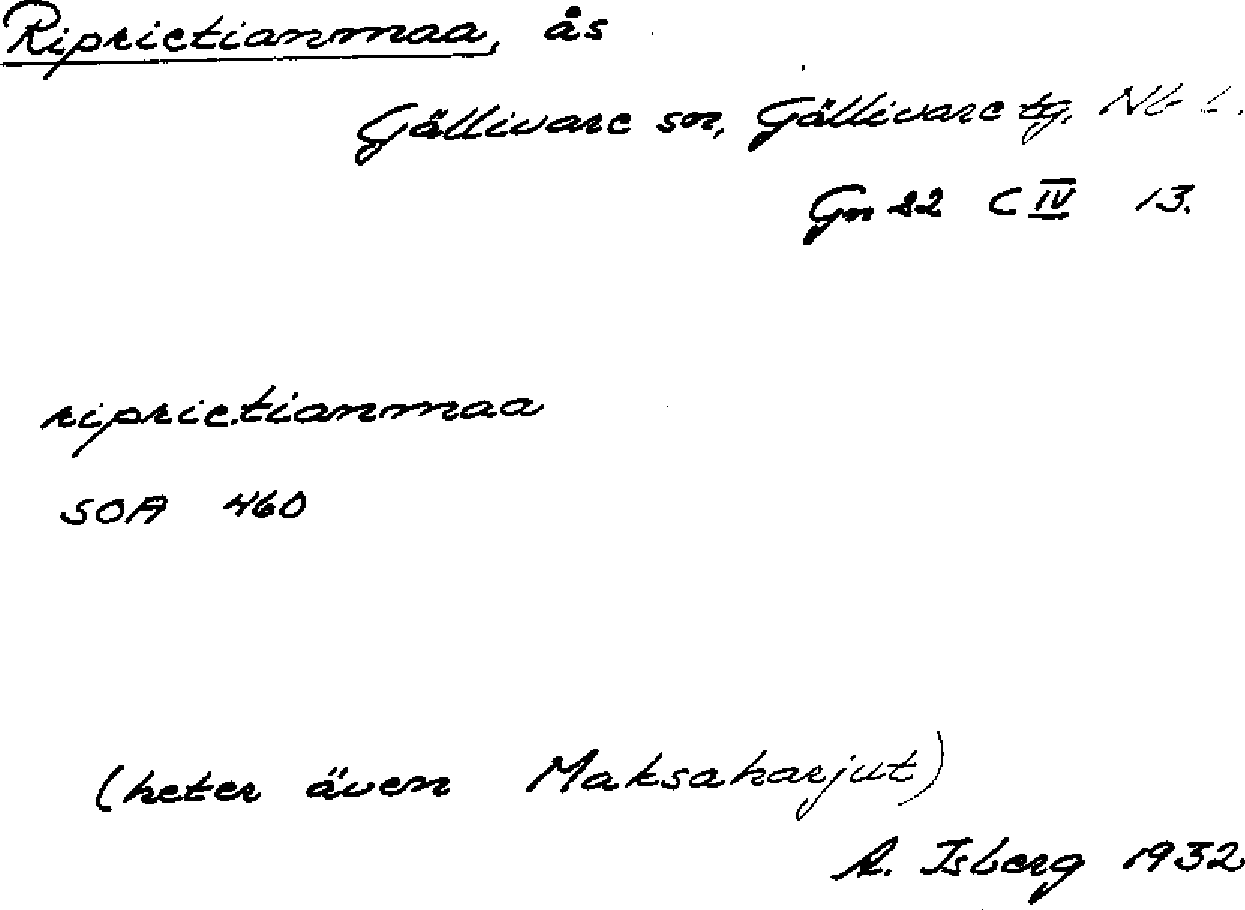 Riprictianmaa, ås
Gällivare sn, Gällivare tg, Nb L.
Gn 22 C IV 13.
riprictianmaa
SOA 460
(heter även Maksaharjut)
A. Isberg 1932